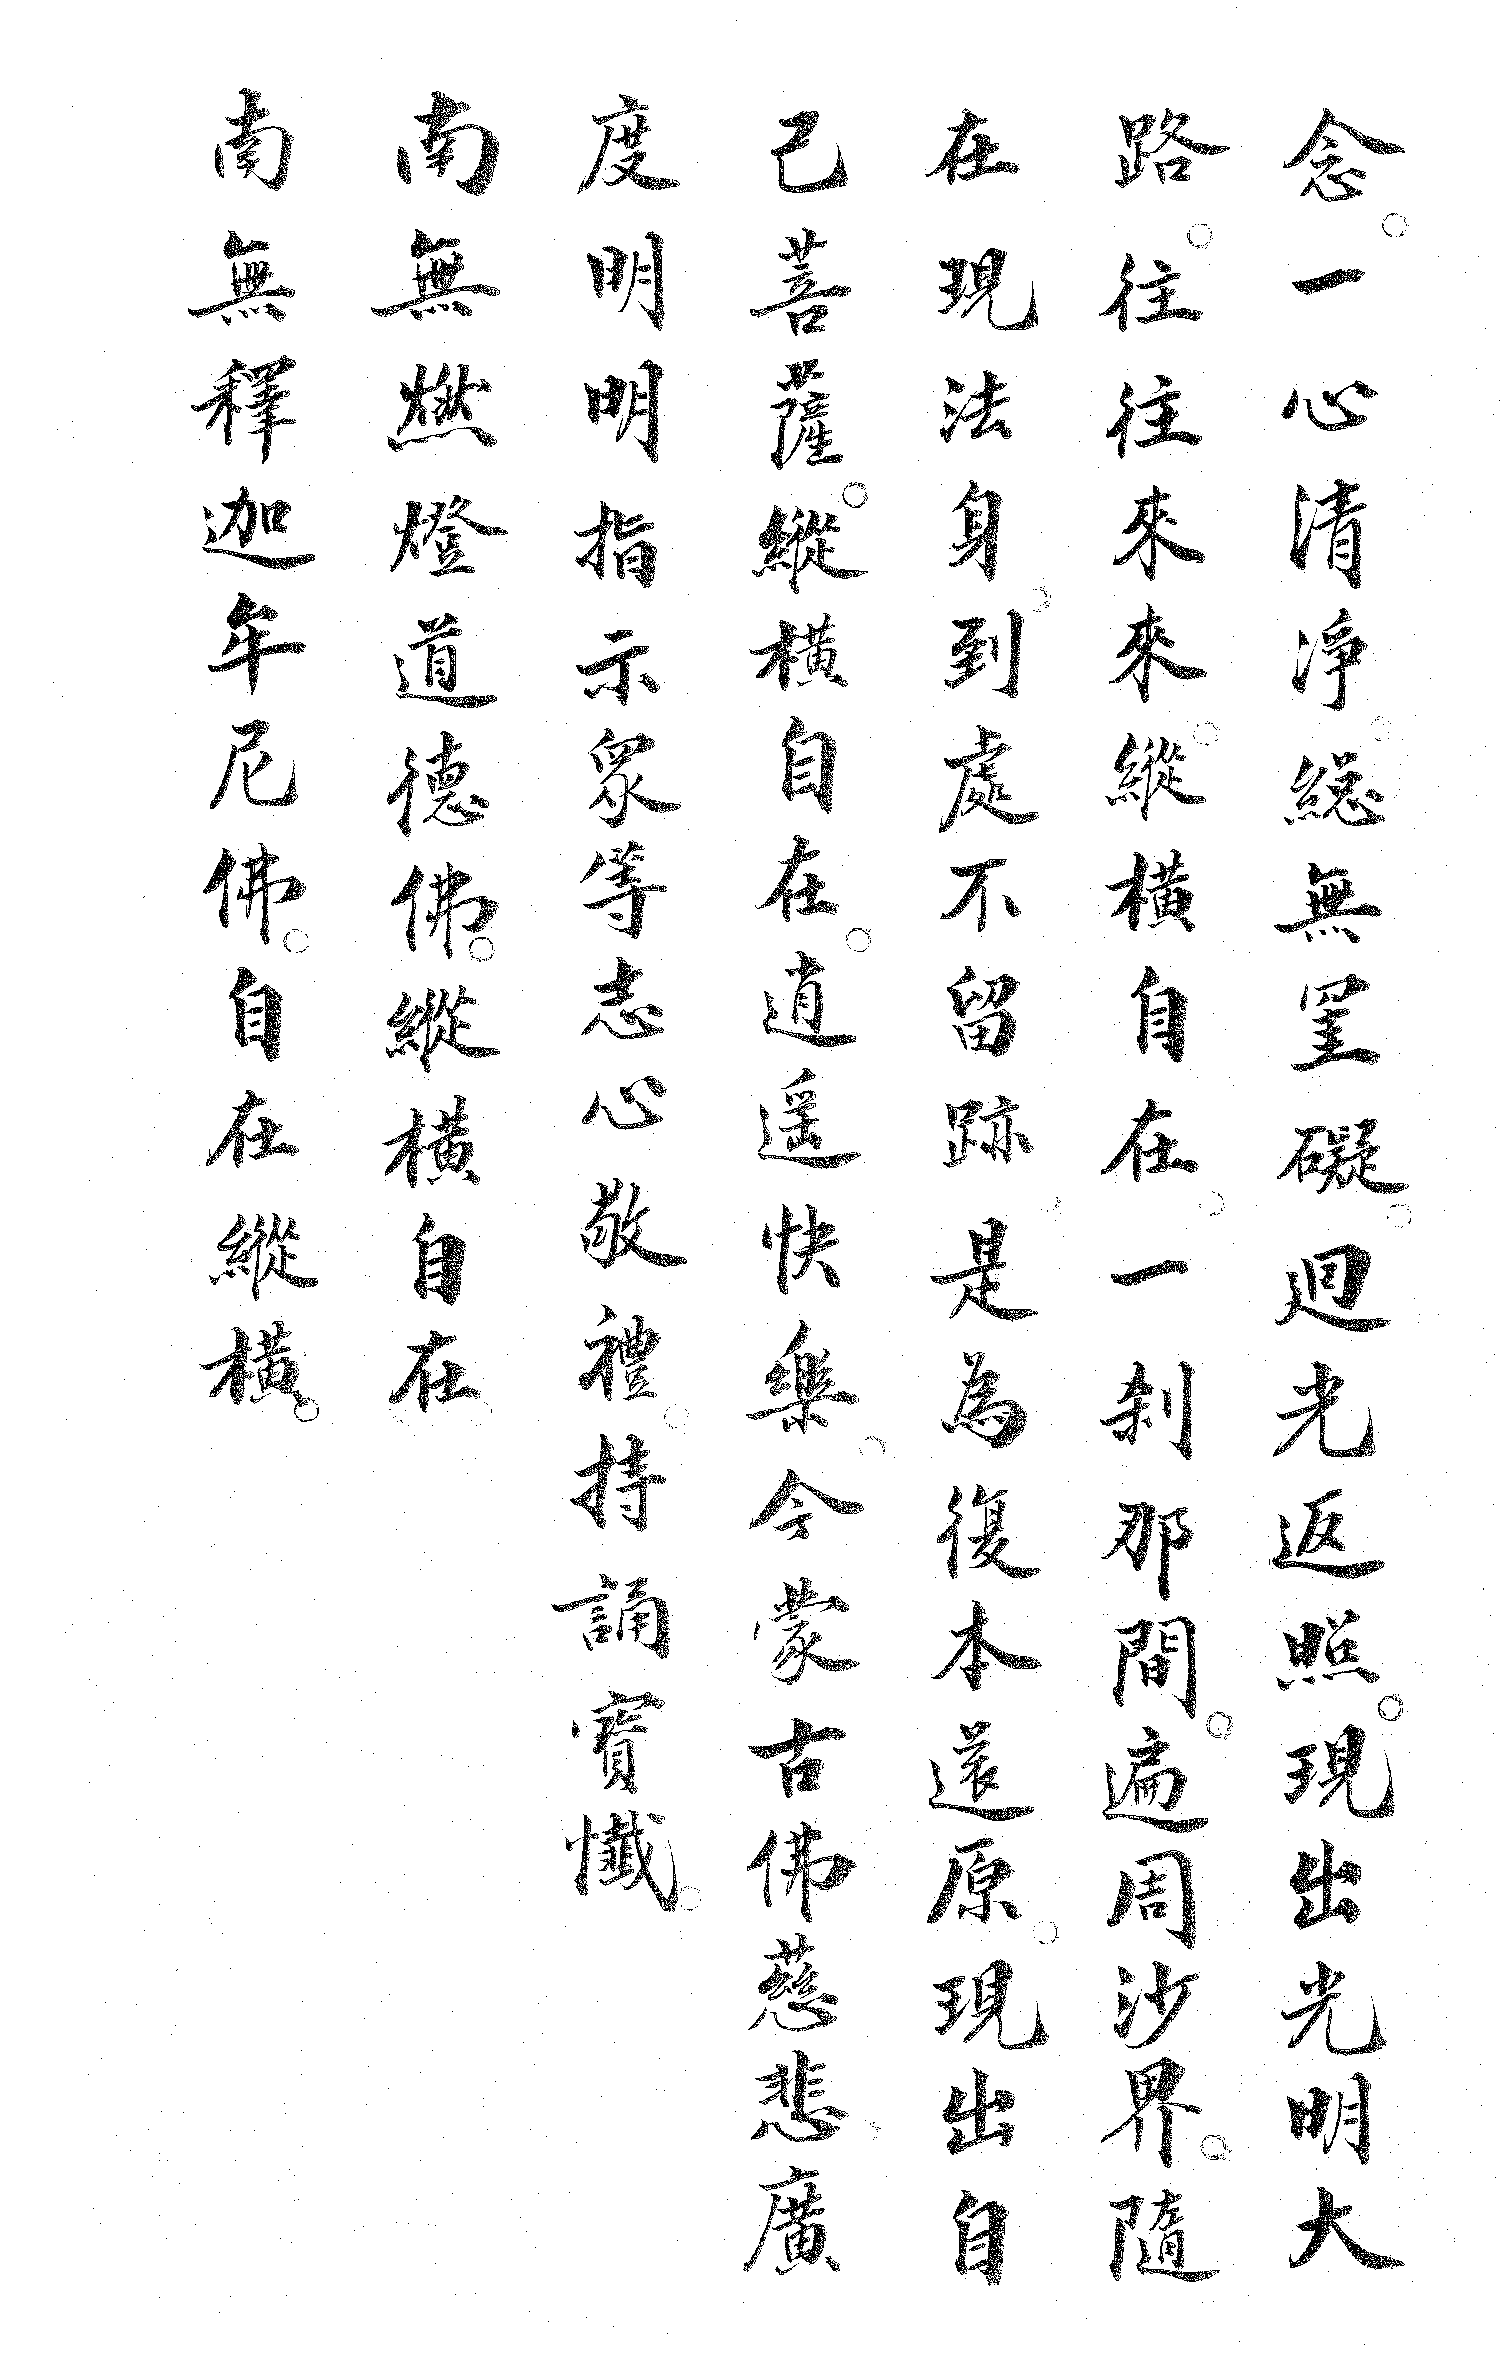 念。一心清淨。総無罣礙。迴光返照。現出光明大
路。往往來來。縱橫自在。一刹那間。遍周沙界。隨
在現法身。到處不留跡。是為復本還原。現出自
己菩薩。縱橫自在。逍遥快樂。今蒙古佛慈悲。廣
度明明指示眾等志心敬禮。持誦寶懺。
南無燃燈道德佛。縱橫自在。
南無釋迦牟尼佛。自在縱橫。